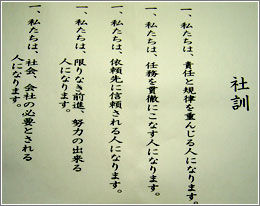 社訓
一、私たちは、責任と規律を重んじる人になります。
一、私たちは、任務を貫徹にこなす人になります。
一、私たちは、依頼先に信頼される人になります。
一、私たちは、限りなき前進、努力の出来る
人になります。
一、私たちは、社会、会社の必要とされる
人になります。